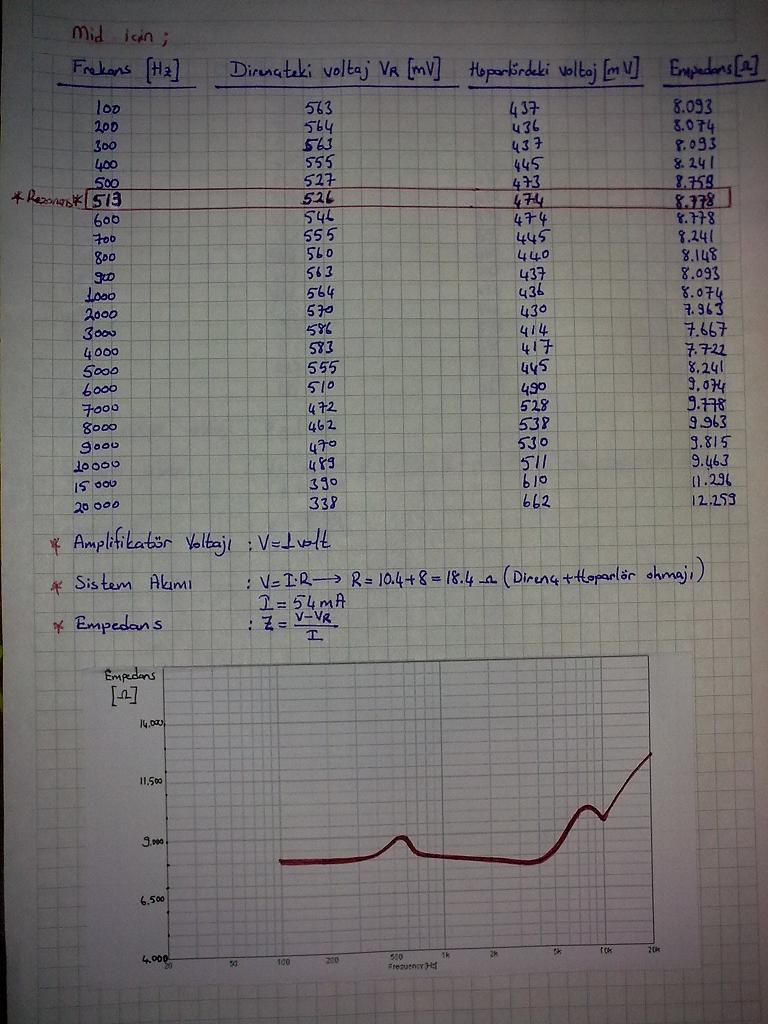 Mid için;
Frekans [Hz] Dirençteki voltaj VR [mV] Hoparlördeki voltaj [mV] Empedans [Ω]
100 563 437 8.093
200 564 436 8.074
300 563 437 8.093
400 555 445 8.241
500 527 473 8.759
*Rezonans* 513 526 474 8.778
600 546 474 8.778
700 555 445 8.241
800 560 440 8.148
900 563 437 8.093
1000 564 436 8.074
2000 570 430 7.963
3000 586 414 7.667
4000 583 417 7.722
5000 555 445 8.241
6000 510 490 9.074
7000 472 528 9.778
8000 462 538 9.963
9000 470 530 9.815
10000 489 511 9.463
15000 390 610 11.296
20000 338 662 12.259
* Amplifikatör Voltajı : V=1 volt
* Sistem Akımı : V=I.R → R=10.4+8=18.4 Ω (Direnç+Hoparlör ohmajı)
I=54mA
* Empedans : Z = V-VR / I
Empedans
[Ω]
14.000
11.500
9.000
6.500
4.000
20 50 100 200 500 1k 2k 5k 10k 20k
Frequency [Hz]